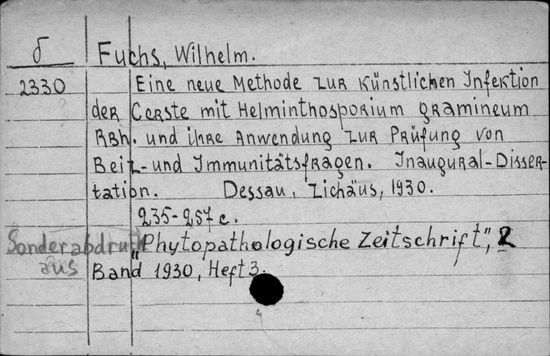 δ Fuchs, Wilhelm.
2330 Eine neue Methode zur künstlichen Infektion
der Cerste mit Helminthosporium gramineum
Rbh. und ihre Anwendung zur Prüfung von
Beiz- und Immunitätsfragen. Inaugural-Disser-
tation. Dessau, Zichäus, 1930.
235-257 c.
Sonderabdruck "Phytopathologische Zeitschrift", 2
aus Band 1930, Heft 3.